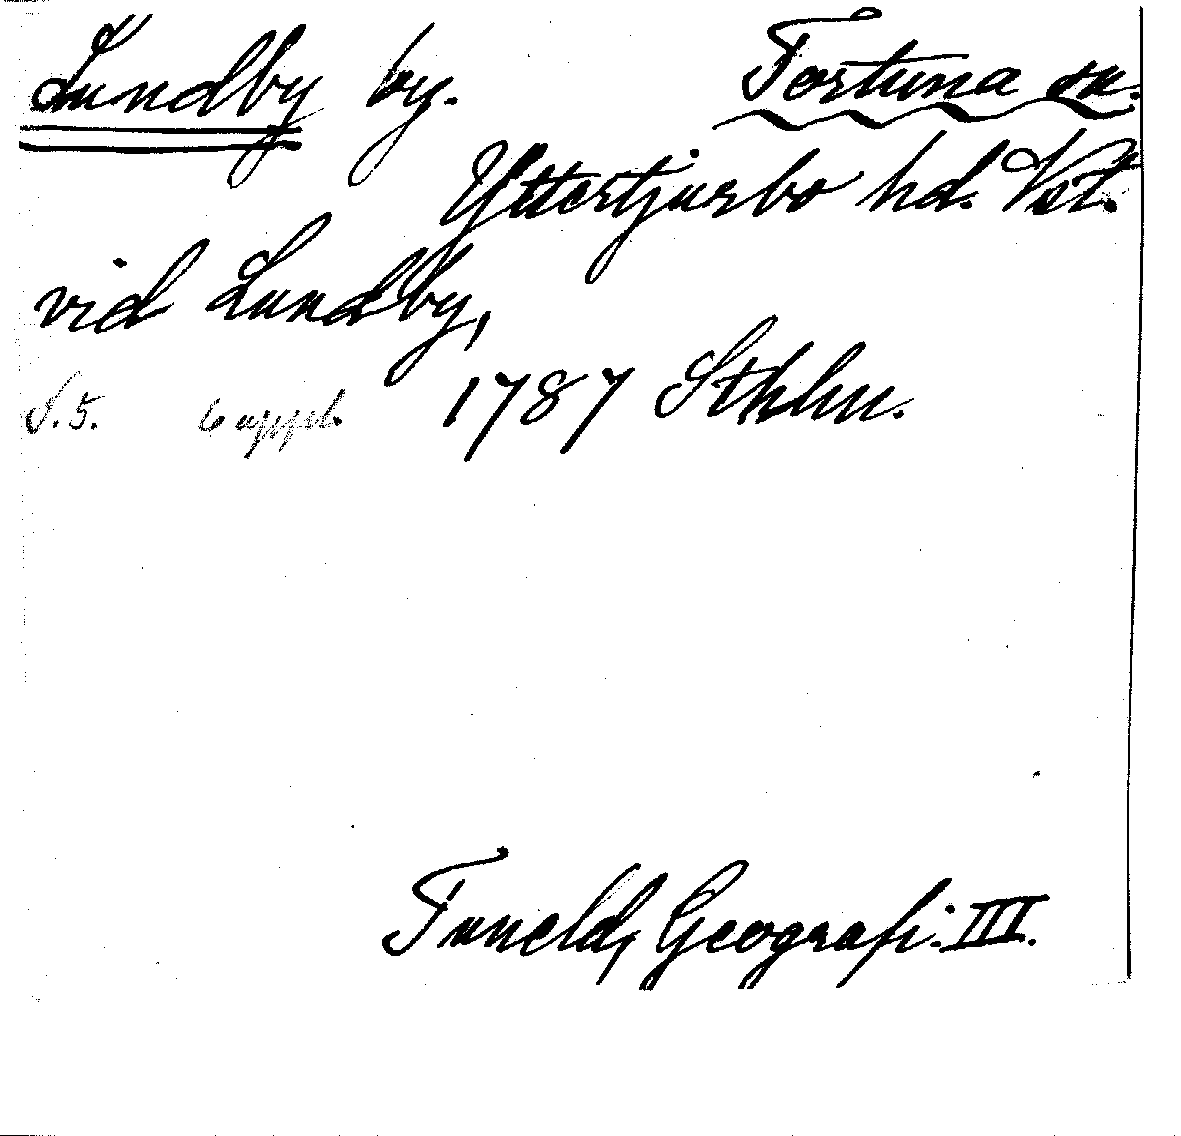 Lundby by. Fortuna sn.
Yttertjurbo hd. Vstm.
vid Lundby,
S. 5. 6 uppl. 1787 Sthlm.
Tuneld, Geografi. III.